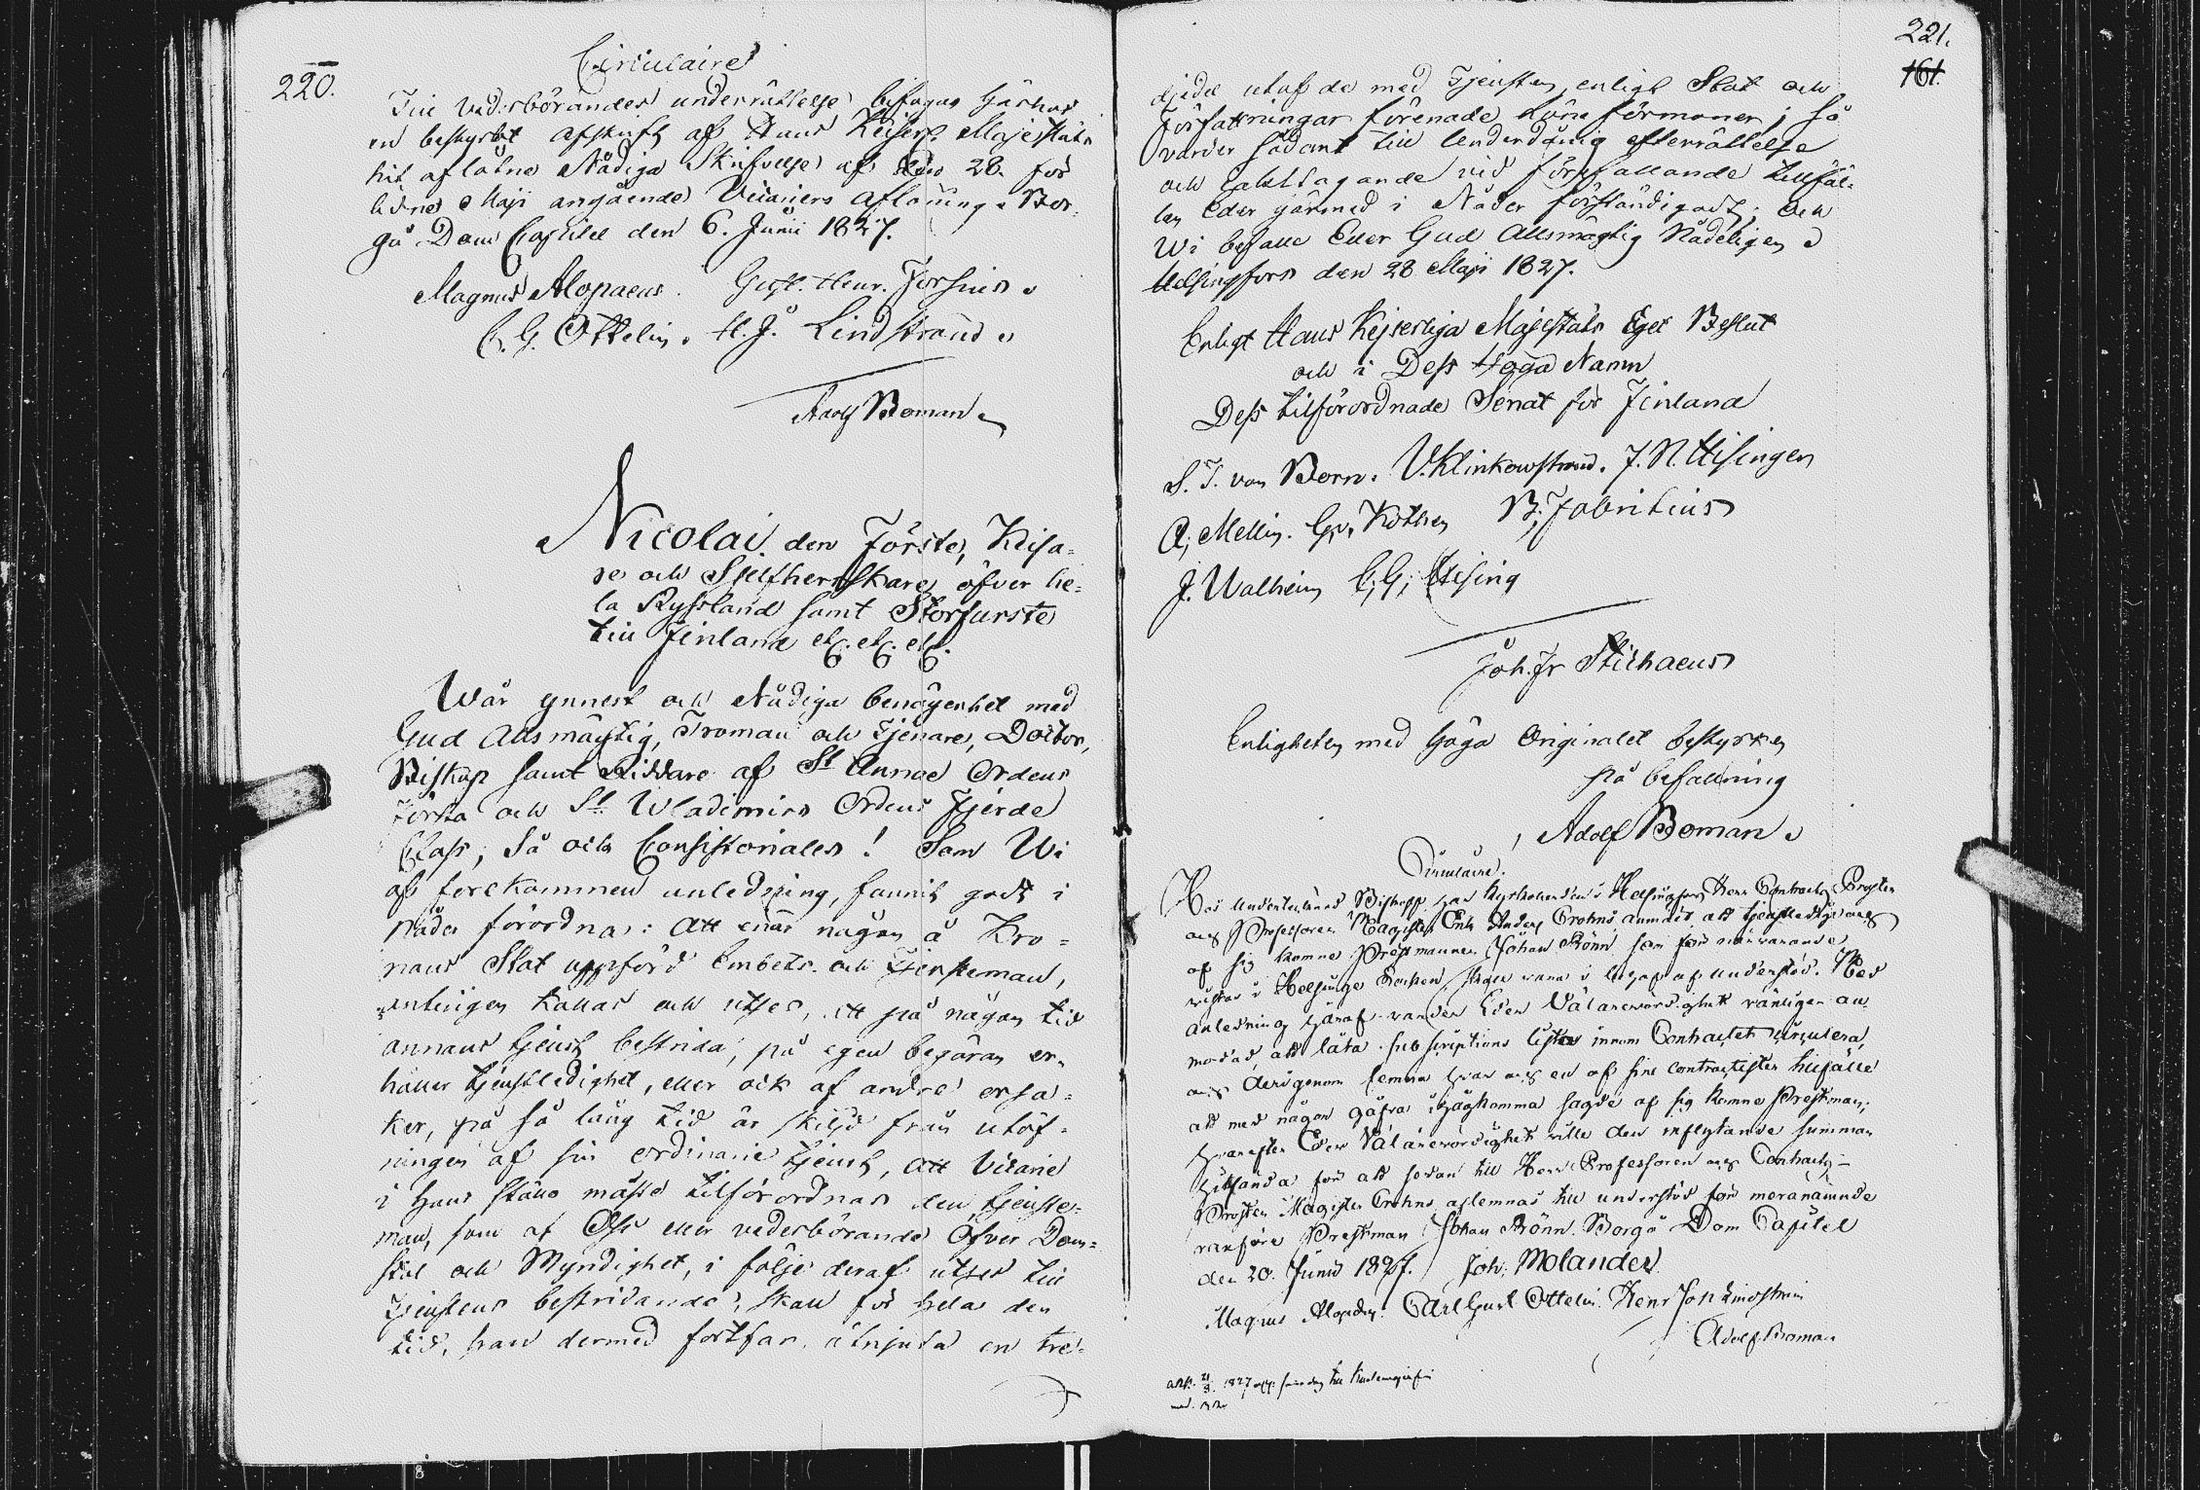 220.
Circulaire
Till vederbörandes underrättelse bifogas härhos
en bestyrkt afskrift af Hans Kejserl. Majestäts
hit aflåtne Nådiga Skrifvelse af den 28. för
lidne Maji angående Vicariers aflöning. Bor-
gå Dom Capitel den 6. Junii 1827.
Magnus Alopaeus. Gust. Henr. Forsius.
C. G. Ottelin. H. J. Lindstrand.
Adolf Boman
Nicolai den Förste, Kejsa-
re och Sjelfherrskare öfver he-
la Ryssland samt Storfurste
till Finland etc. etc. etc.
Wår ynnest och Nådiga benägenhet med
Gud Allsmägtig, Troman och Tjenare, Doctor,
Biskop samt Riddare af St Annae Ordens
Första och St Wladimirs Ordens Fjerde
Class, så och Consistoriales! Som Wi
af förekommen anledning, funnit godt i
Nåder förordna: att enär någon å Kro-
nans Stat uppförd Embets- och Tjensteman,
antingen kallas och utses, att på någon tid
annans tjenst bestrida, på egen begäran er-
håller tjenstledighet, eller ock af andre orsa-
ker, på så lång tid är skiljd från utöf-
ningen af sin ordinarie tjenst, att Vicarie
i hans ställe måste tillförordnas den tjenste-
man, som af Oss eller vederbörande Öfver Dom-
stol och Myndighet, i följe deraf utses till
Tjenstens bestridande, skall för hela den
tid, han dermed fortfar, åtnjuta en tre-
221.
161.
djedel utaf de med Tjensten enligt Stat och
Författningar förenade Löne förmoner; så
varder sådant till Underdånig efterrättelse
och iakttagande vid förefallande tillfäl-
len Eder härmed i Nåder förständigadt; Och
Wi befalle Eder Gud Allsmägtig Nådeligen.
Helsingfors den 28 Maji 1827.
Enligt Hans Kejserliga Majestäts Eget Beslut
och i Dess Höga Namn
Dess tillförordnade Senat för Finland
S. F. von Born. V. Klinkowström. F. N. Hisingen
A. Mellin. G. v. Kothen B. Fabritius
J. Walheim C. G. Hising
Joh. Fr Stichaeus
Enligheten med höga Originalet bestyrker
på befallning
Adolf Boman.
Circulaire.
Hos Undertecknad Biskopp har Kyrkoherden i Helsingfors Herr Contracts Prosten
och Professoren Magister Erik Anders Crohns anmält att tjenstledige och
af sig komne Prestmannen Johan Rönn som för närvarande
vistas i Helsinge Socken, skall vara i behof af understöd. Med
anledning häraf varder Eder Välärewördighet vänligen an-
modad att låta subscriptions listor inom Contractet circulera,
och derigenom lemna hvar och en af sine contractister tillfälle
att med någon gåfva ihågkomma sagde af sig komne Prestman;
hvarefter Eder Välärewördighet ville den inflytande summan
hitsända för att sedan till Herr Professoren och Contracts-
Prosten Magister Crohns aflemnas till understöd för meranämnde
vanföre Prestman Johan Rönn. Borgå Dom Capitel
den 20. Junii 1827. Joh. Molander.
Magnus Alopaeus. Carl Gust. Ottelin. Henr Joh Lindstrand
Adolf Boman